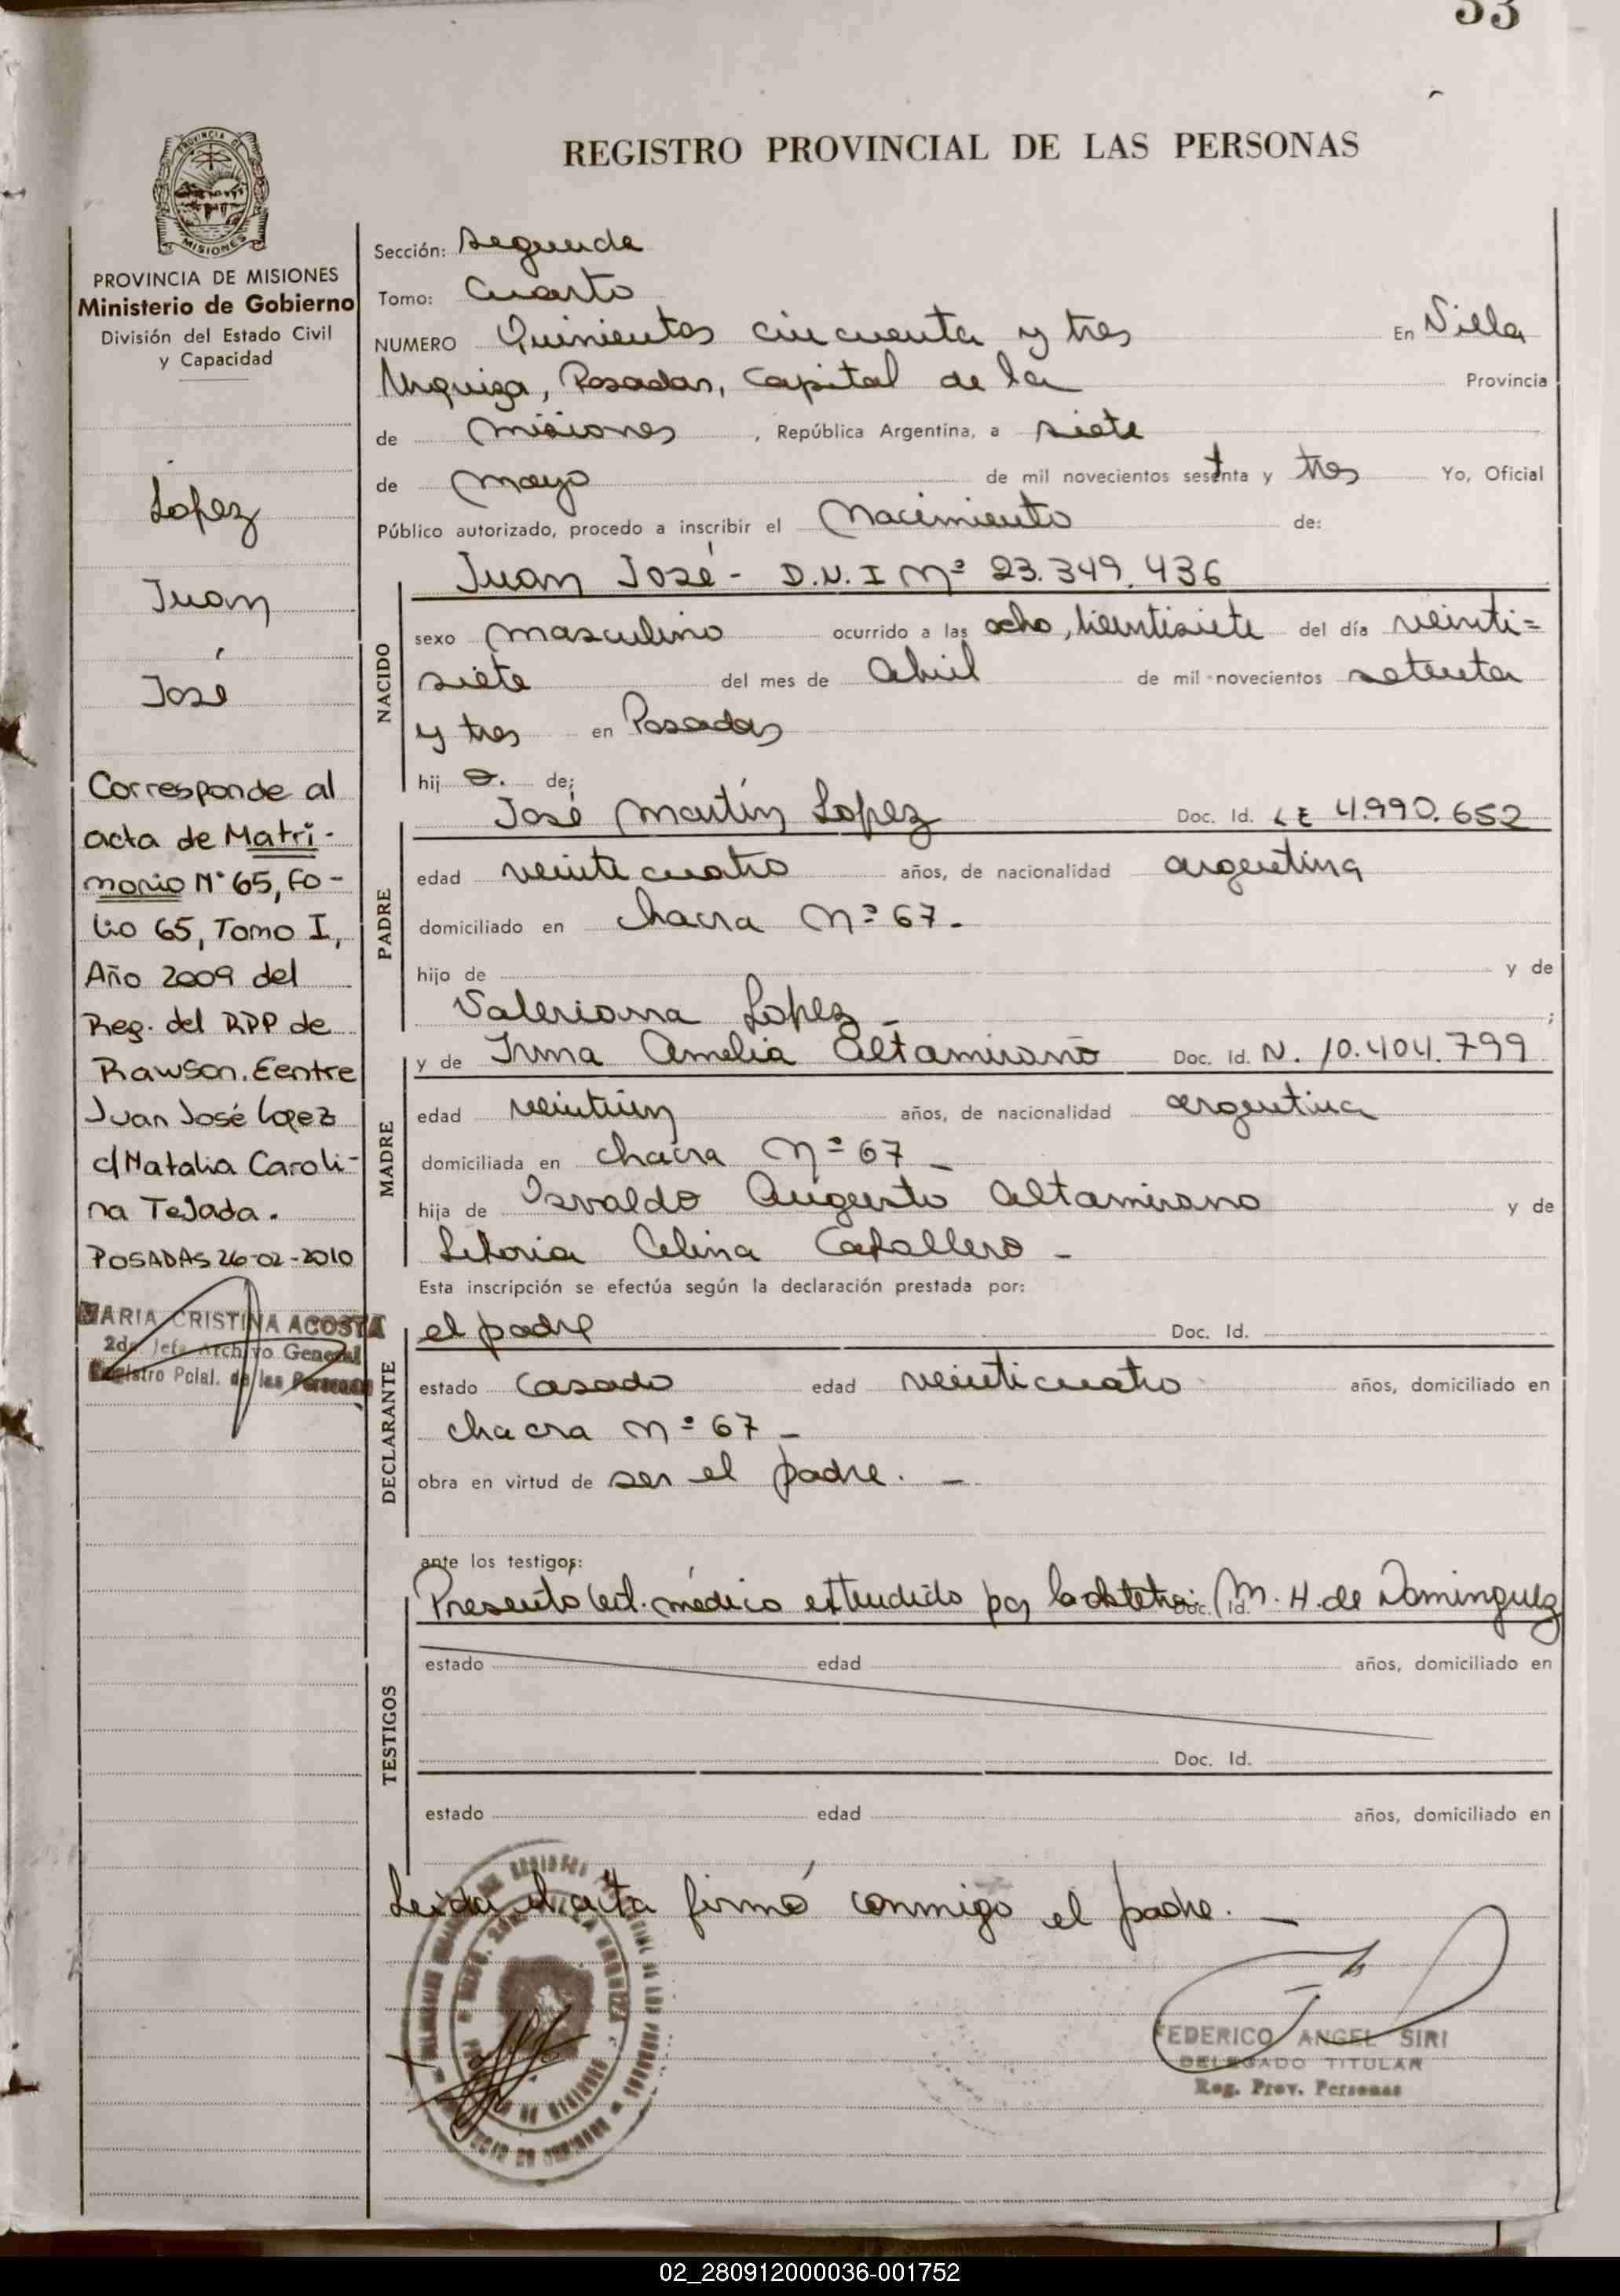 53
REGISTRO PROVINCIAL DE LAS PERSONAS
PROVINCIA DE MISIONES
PROVINCIA DE MISIONES
Ministerio de Gobierno
División del Estado Civil
y Capacidad
Lopez
Juan
José
Corresponde al
acta de Matri-
monio N° 65, Fo-
lio 65, Tomo I,
Año 2009 del
Reg. del RPP de
Rawson. Eentre
Juan José Lopez
c/ Natalia Caroli-
na Tejada.
POSADAS 26-02-2010
MARIA CRISTINA ACOSTA
2da. Jefa Archivo General
Registro Pcial. de las Personas
Sección: Segunda
Tomo: Cuarto
NUMERO Quinientos cincuenta y tres En Villa
Urquiza, Posadas, Capital de la Provincia
de Misiones, República Argentina, a siete
de mayo de mil novecientos setenta y tres Yo, Oficial
Público autorizado, procedo a inscribir el Nacimiento de:
Juan José - D.N.I Nº 23.349.436
NACIDO
sexo masculino ocurrido a las ocho, veintisiete del día veinti=
siete del mes de abril de mil novecientos setenta
y tres en Posadas
hij o. de;
José Martín Lopez Doc. Id. LE 4.990.652
PADRE
edad veinticuatro años, de nacionalidad argentina
domiciliado en chacra Nº 67.
hijo de y de
Valeriana Lopez - ;
y de Irma Amelia Altamirano Doc. Id. N. 10.404.799
MADRE
edad veintiún años, de nacionalidad argentina
domiciliada en chacra Nº 67 -
hija de Osvaldo Augusto Altamirano y de
Celina Caballero -
Esta inscripción se efectúa según la declaración prestada por:
el padre Doc. Id.
DECLARANTE
estado casado edad veinticuatro años, domiciliado en
chacra Nº 67 -
obra en virtud de ser el padre. -
ante los testigos:
Presentó cert. médico extendido por la obstetra: M. H. de Dominguez Doc. Id.
TESTIGOS
estado edad años, domiciliado en
Doc. Id.
estado edad años, domiciliado en
Leída el acta firmó conmigo el padre. -
FEDERICO ANGEL SIRI
DELEGADO TITULAR
Reg. Prov. Personas
02_280912000036-001752